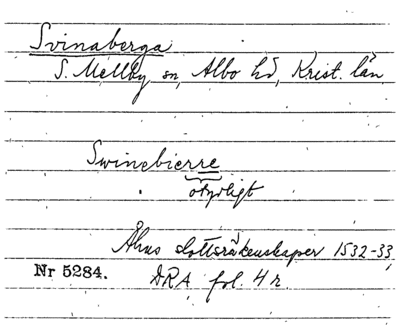 Svinaberga
S. Mellby sn, Albo hd, Krist. län
Swinebierre
otydligt
Åhus slottsräkenskaper 1532-33,
Nr 5284. DRA fol. 4 r.